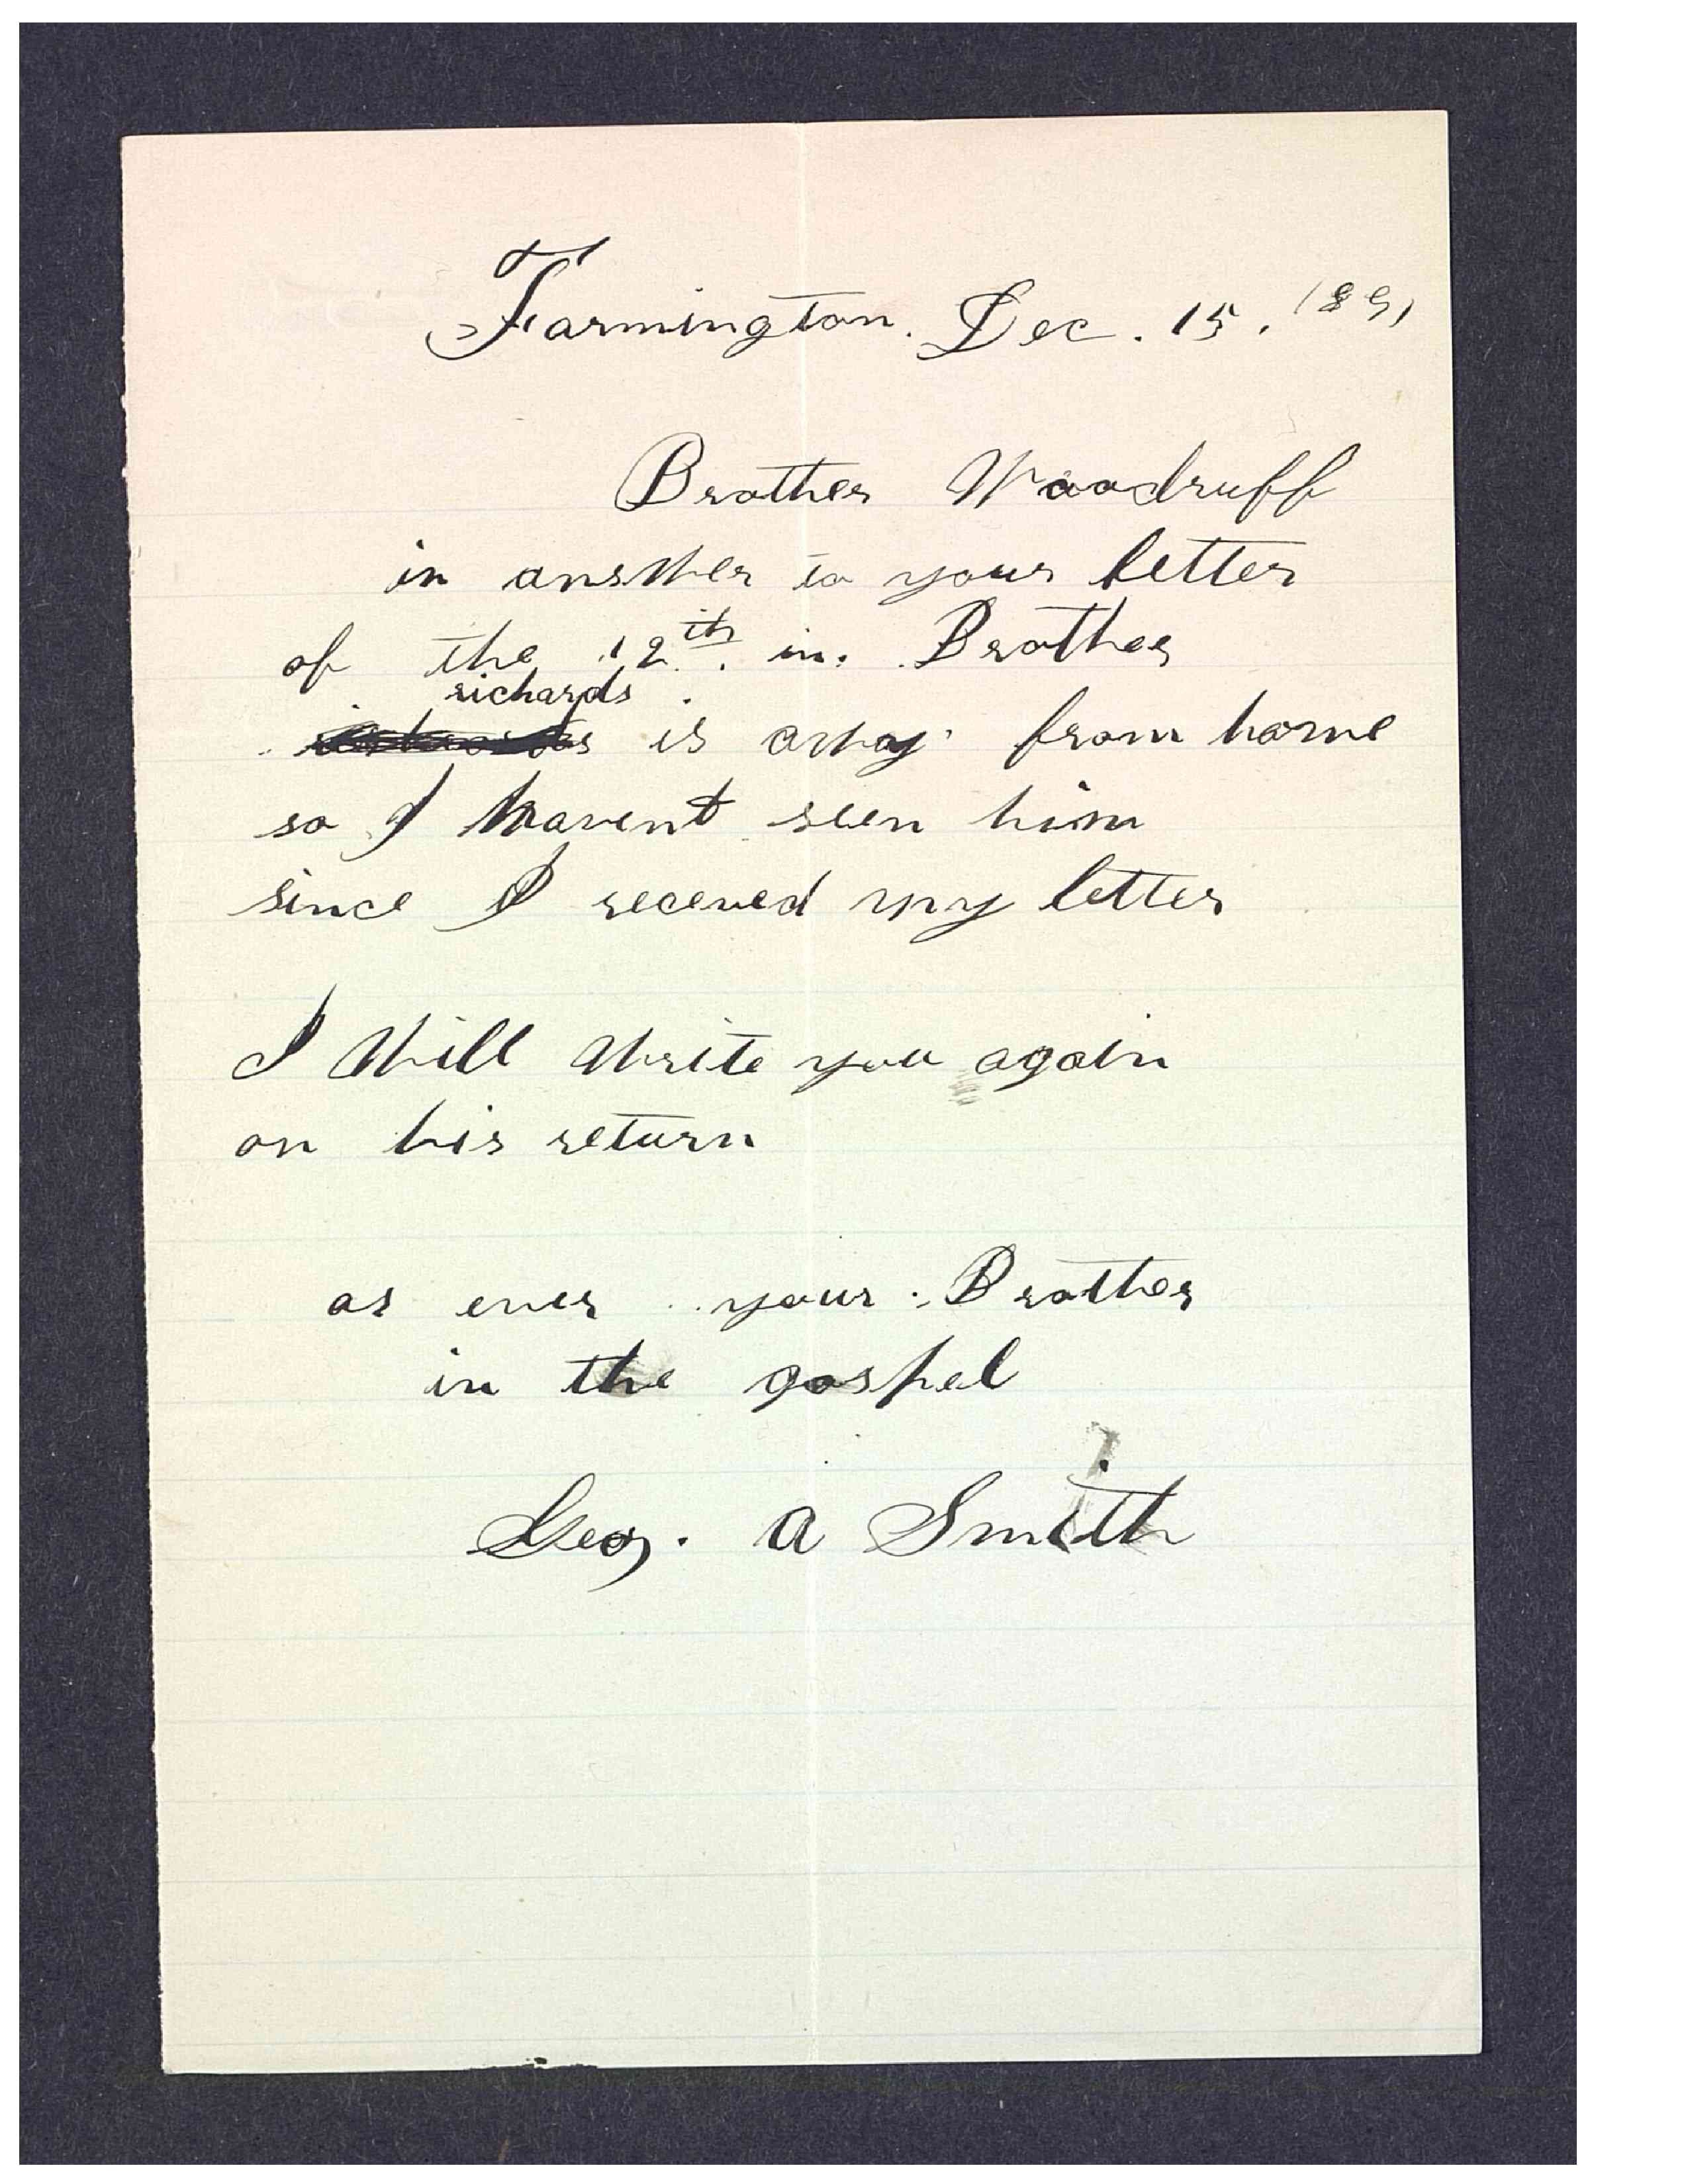 Farmington. Dec. 15. 1891
Brother Woodruff
in answer to your letter
of the 12th. in. Brother
richards
is away from home
so I havent seen him
since I receved my letter
I Will Write you again
on his return
as ever your Brother
in the gospel
Geo. A Smith